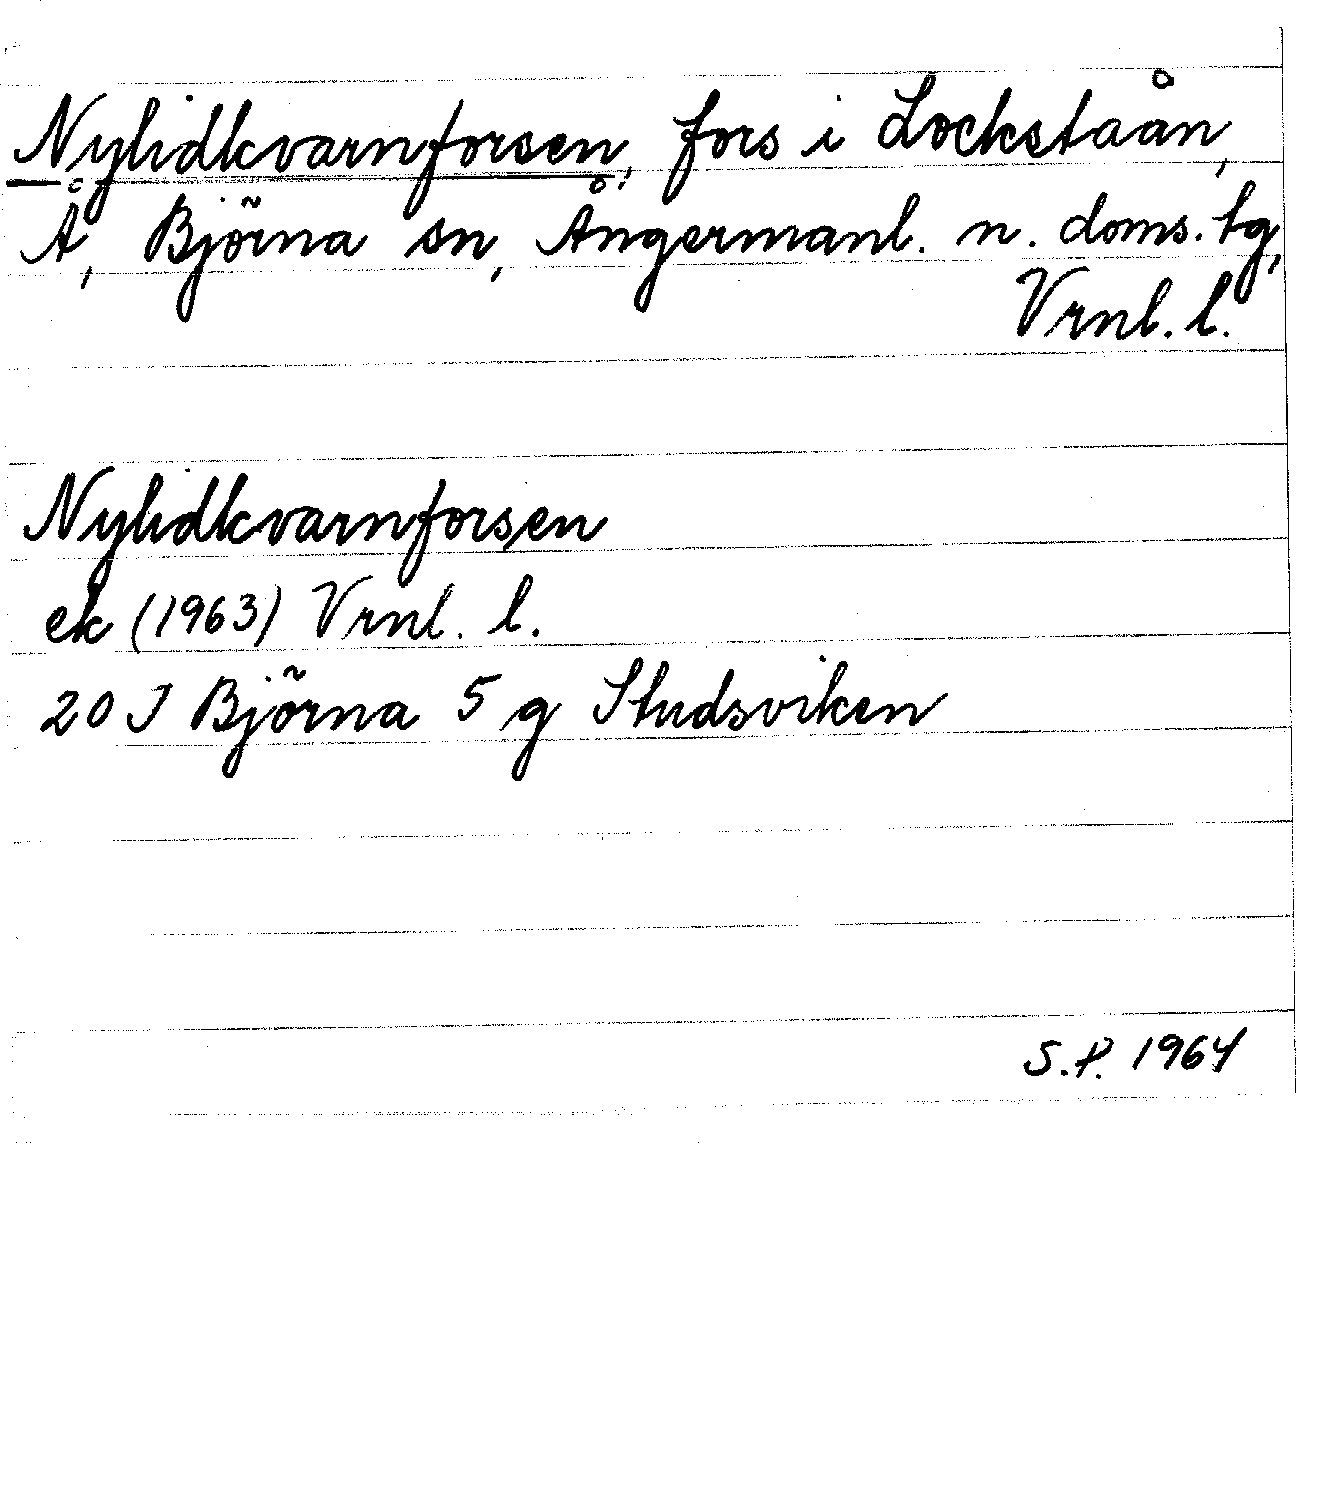 Nylidkvarnforsen, fors i Lockstaån,
Å, Björna sn, Ångermanl. n. doms. tg,
Vrnl. l.
Nylidkvarnforsen
ek (1963) Vrnl. l.
20 J Björna 5 g Studsviken
S.P. 1964